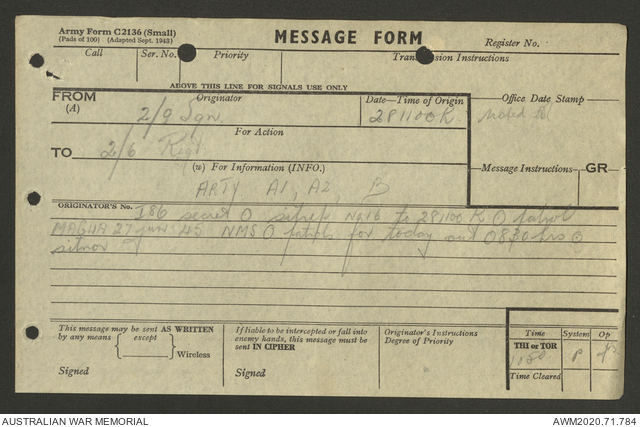 Army Form C2136 (Small)
(Pads of 100) (Adapted Sept. 1943)
MESSAGE FORM
Register No.
Call Ser. No. Priority Transmission Instructions
ABOVE THIS LINE FOR SIGNALS USE ONLY
FROM
(A)
Originator
2/9 Sqn
Date—Time of Origin
281100K
Office Date Stamp
Noted
For Action
TO 2/6 Regt
(w) For Information (INFO.)
Message Instructions GR
ARTY A1, A2, B
ORIGINATOR'S No. I86 secret O sitrep No16 to 281100K O patrol
27 Jun 45 NMS O patrols for today out 0830hrs O
sitnor
This message may be sent AS WRITTEN
by any means { except } Wireless
Signed
If liable to be intercepted or fall into
enemy hands, this message must be
sent IN CIPHER
Signed
Originator's Instructions
Degree of Priority
Time System Op
THI or TOR
P
Time Cleared
AUSTRALIAN WAR MEMORIAL
AWM2020.71.784